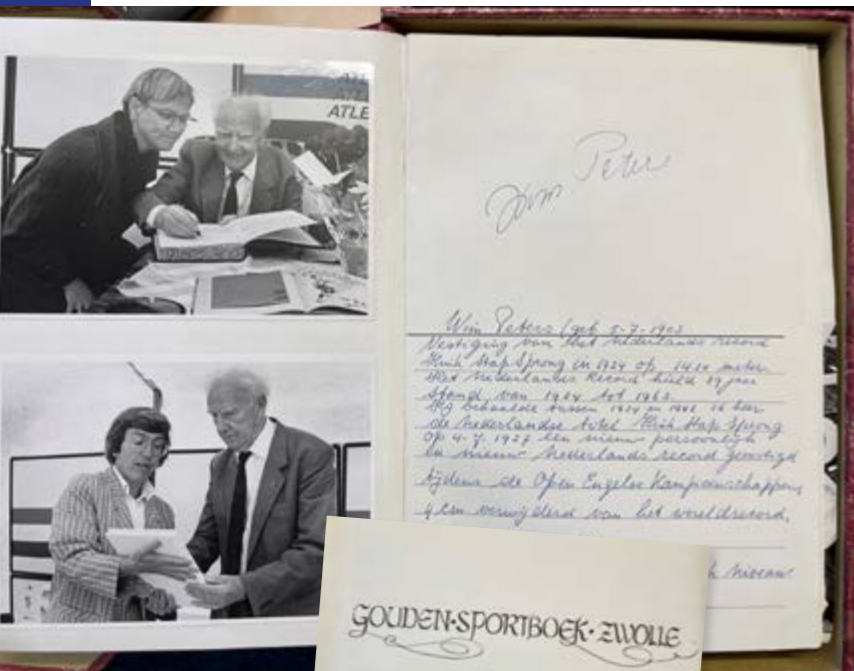 ATLE
Wim Peters
Wim Peters (geb 5-7-1903
Vestiging van het Nederlands record
Hink Stap Sprong in 1924 op 14.14 meter
Het Nederlandse Record hield 39 jaar
stand van 1924 tot 1963.
Hij behaalde tussen 1924 en 1942 16 keer
de Nederlandse titel Hink Stap Sprong
Op 4-7-1927 een nieuw persoonlijk
en nieuw Nederlands record gevestigd
tijdens de Open Engelse Kampioenschappen,
4 cm verwijderd van het wereldrecord,
niveau
GOUDEN·SPORTBOEK·ZWOLLE